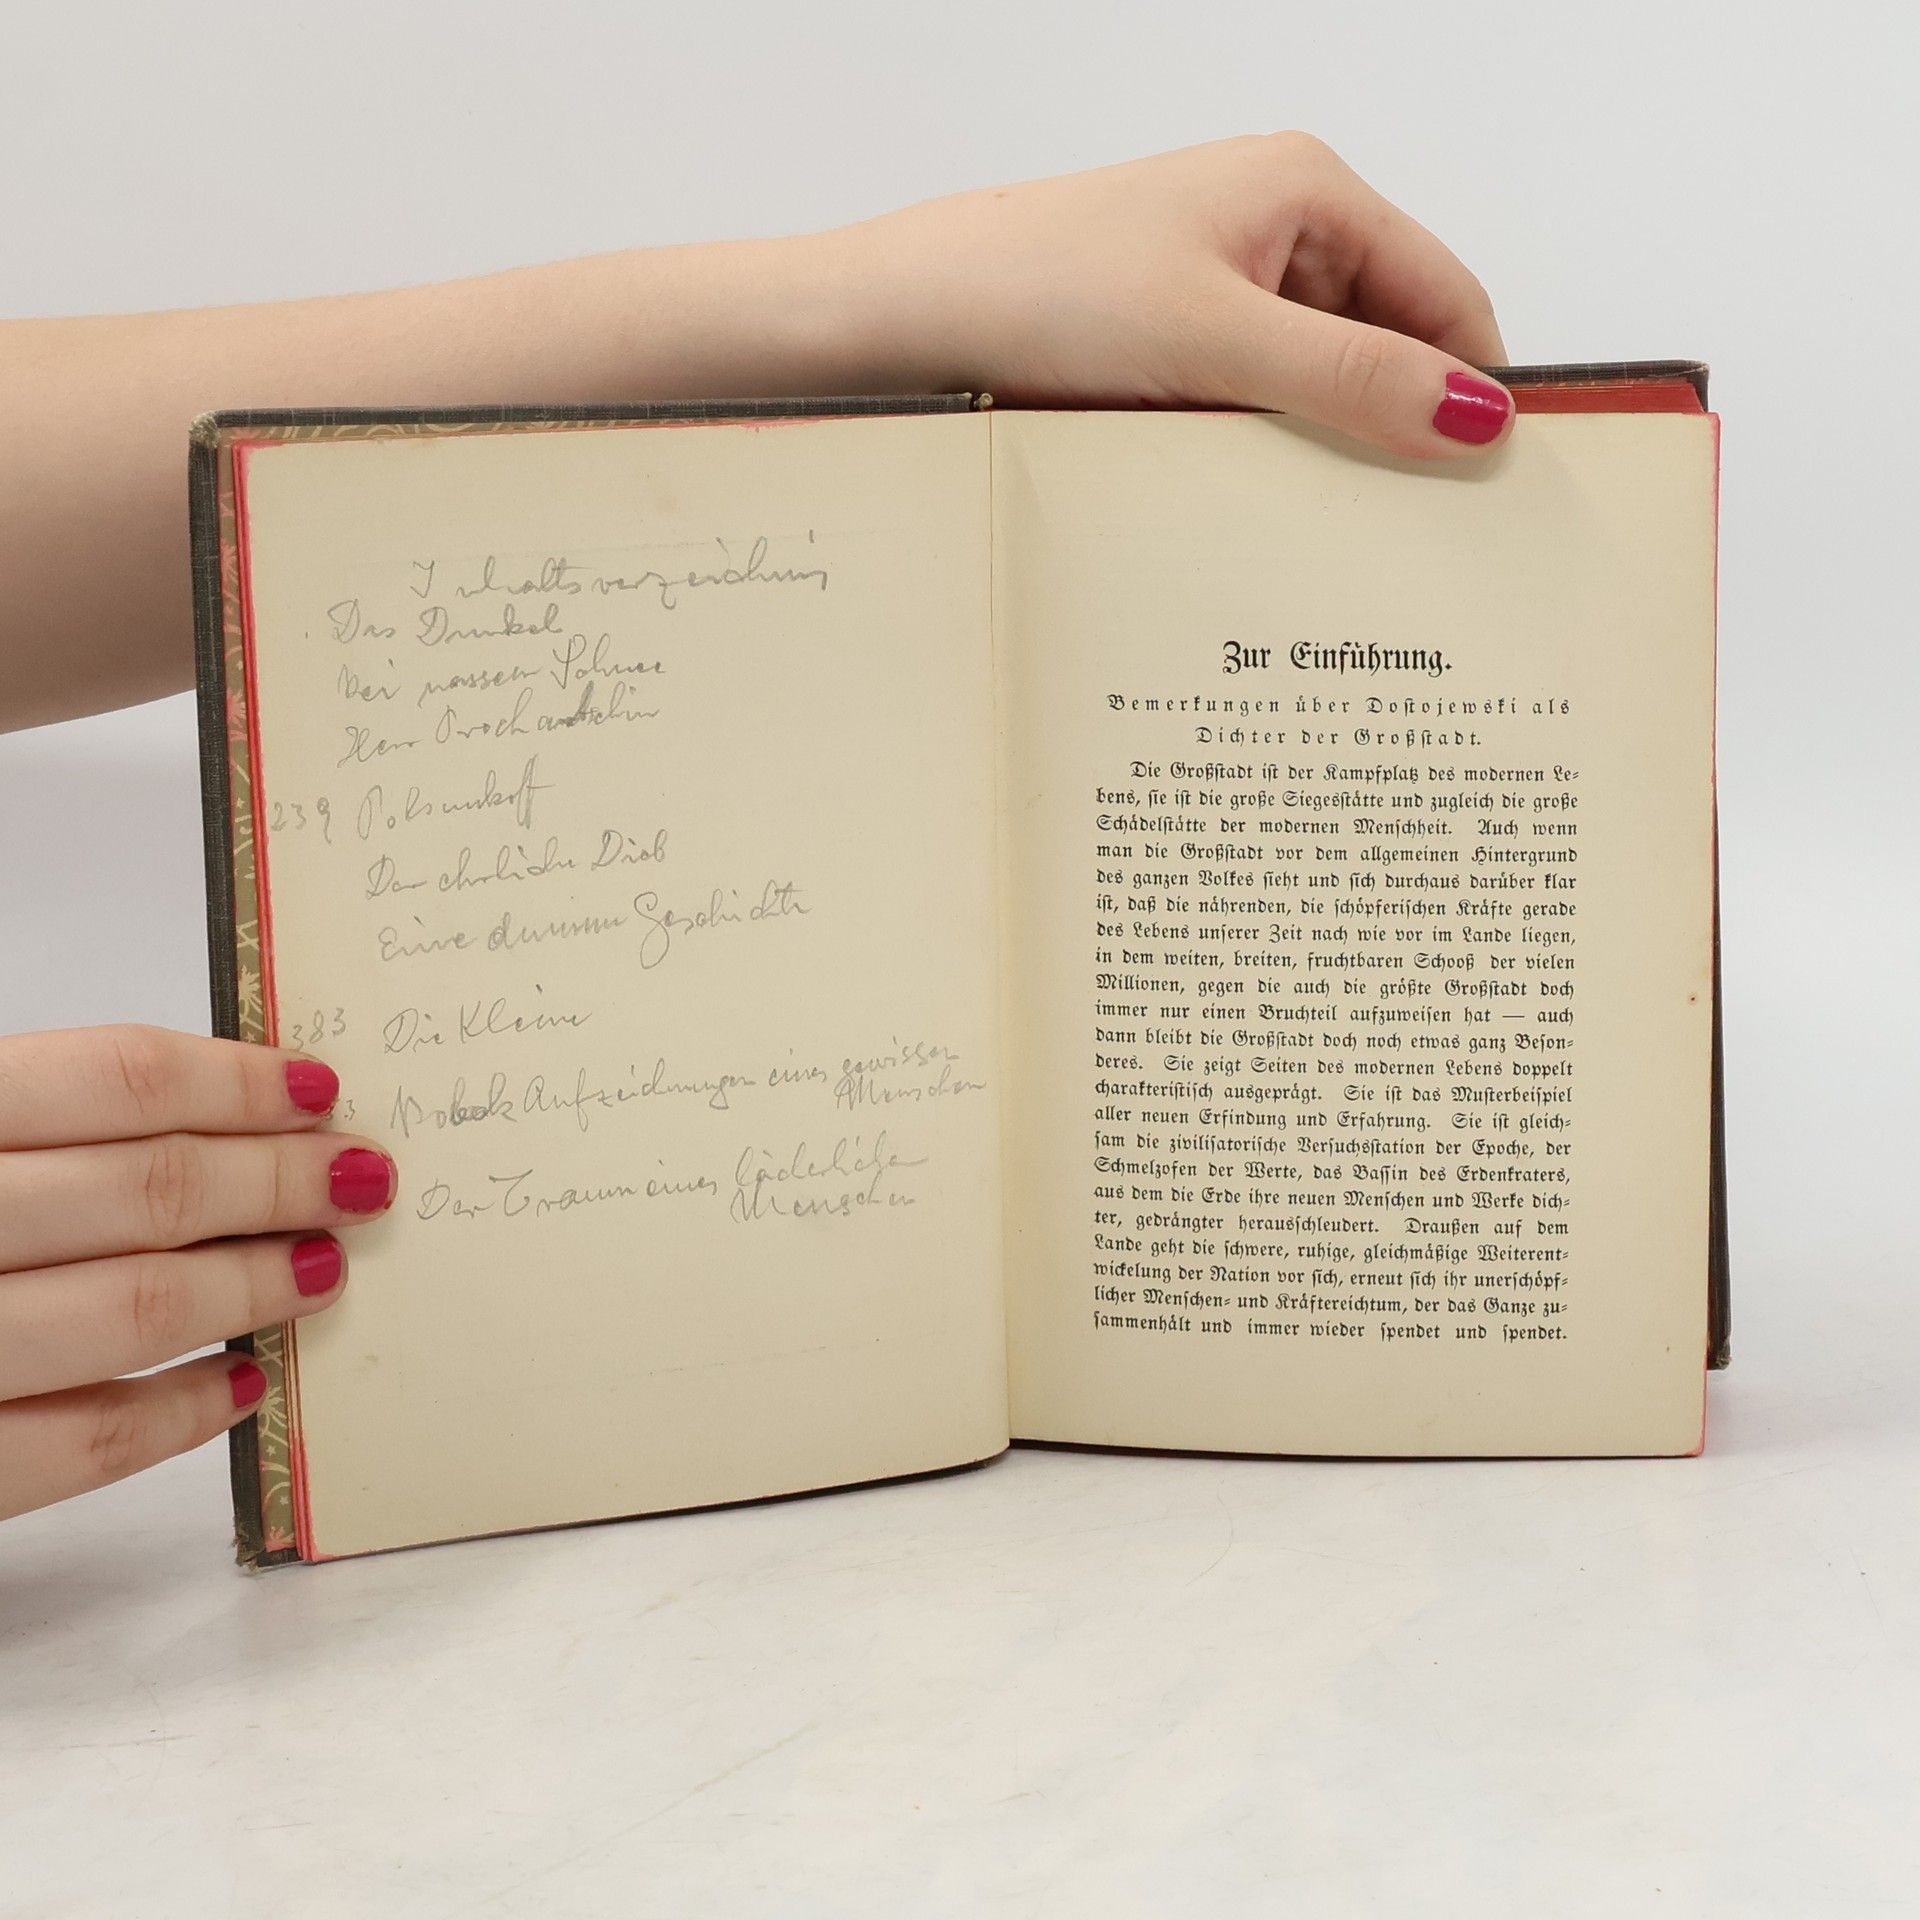 Inhaltsverzeichnis
Das Dunkel
bei nassem Schnee
Herr Prochartschin
239 Polsunkoff
Der ehrliche Dieb
Eine dumme Geschichte
383 Die Kleine
Bobok Aufzeichnungen eines gewissen
Menschen
Der Traum eines lächerlichen
Menschen
Zur Einführung.
Bemerkungen über Dostojewski als
Dichter der Großstadt.
Die Großstadt ist der Kampfplatz des modernen Le-
bens, sie ist die große Siegesstätte und zugleich die große
Schädelstätte der modernen Menschheit. Auch wenn
man die Großstadt vor dem allgemeinen Hintergrund
des ganzen Volkes sieht und sich durchaus darüber klar
ist, daß die nährenden, die schöpferischen Kräfte gerade
des Lebens unserer Zeit nach wie vor im Lande liegen,
in dem weiten, breiten, fruchtbaren Schooß der vielen
Millionen, gegen die auch die größte Großstadt doch
immer nur einen Bruchteil aufzuweisen hat — auch
dann bleibt die Großstadt doch noch etwas ganz Beson-
deres. Sie zeigt Seiten des modernen Lebens doppelt
charakteristisch ausgeprägt. Sie ist das Musterbeispiel
aller neuen Erfindung und Erfahrung. Sie ist gleich-
sam die zivilisatorische Versuchsstation der Epoche, der
Schmelzofen der Werte, das Bassin des Erdenkraters,
aus dem die Erde ihre neuen Menschen und Werke dich-
ter, gedrängter herausschleudert. Draußen auf dem
Lande geht die schwere, ruhige, gleichmäßige Weiterent-
wickelung der Nation vor sich, erneut sich ihr unerschöpf-
licher Menschen- und Kräftereichtum, der das Ganze zu-
sammenhält und immer wieder spendet und spendet.